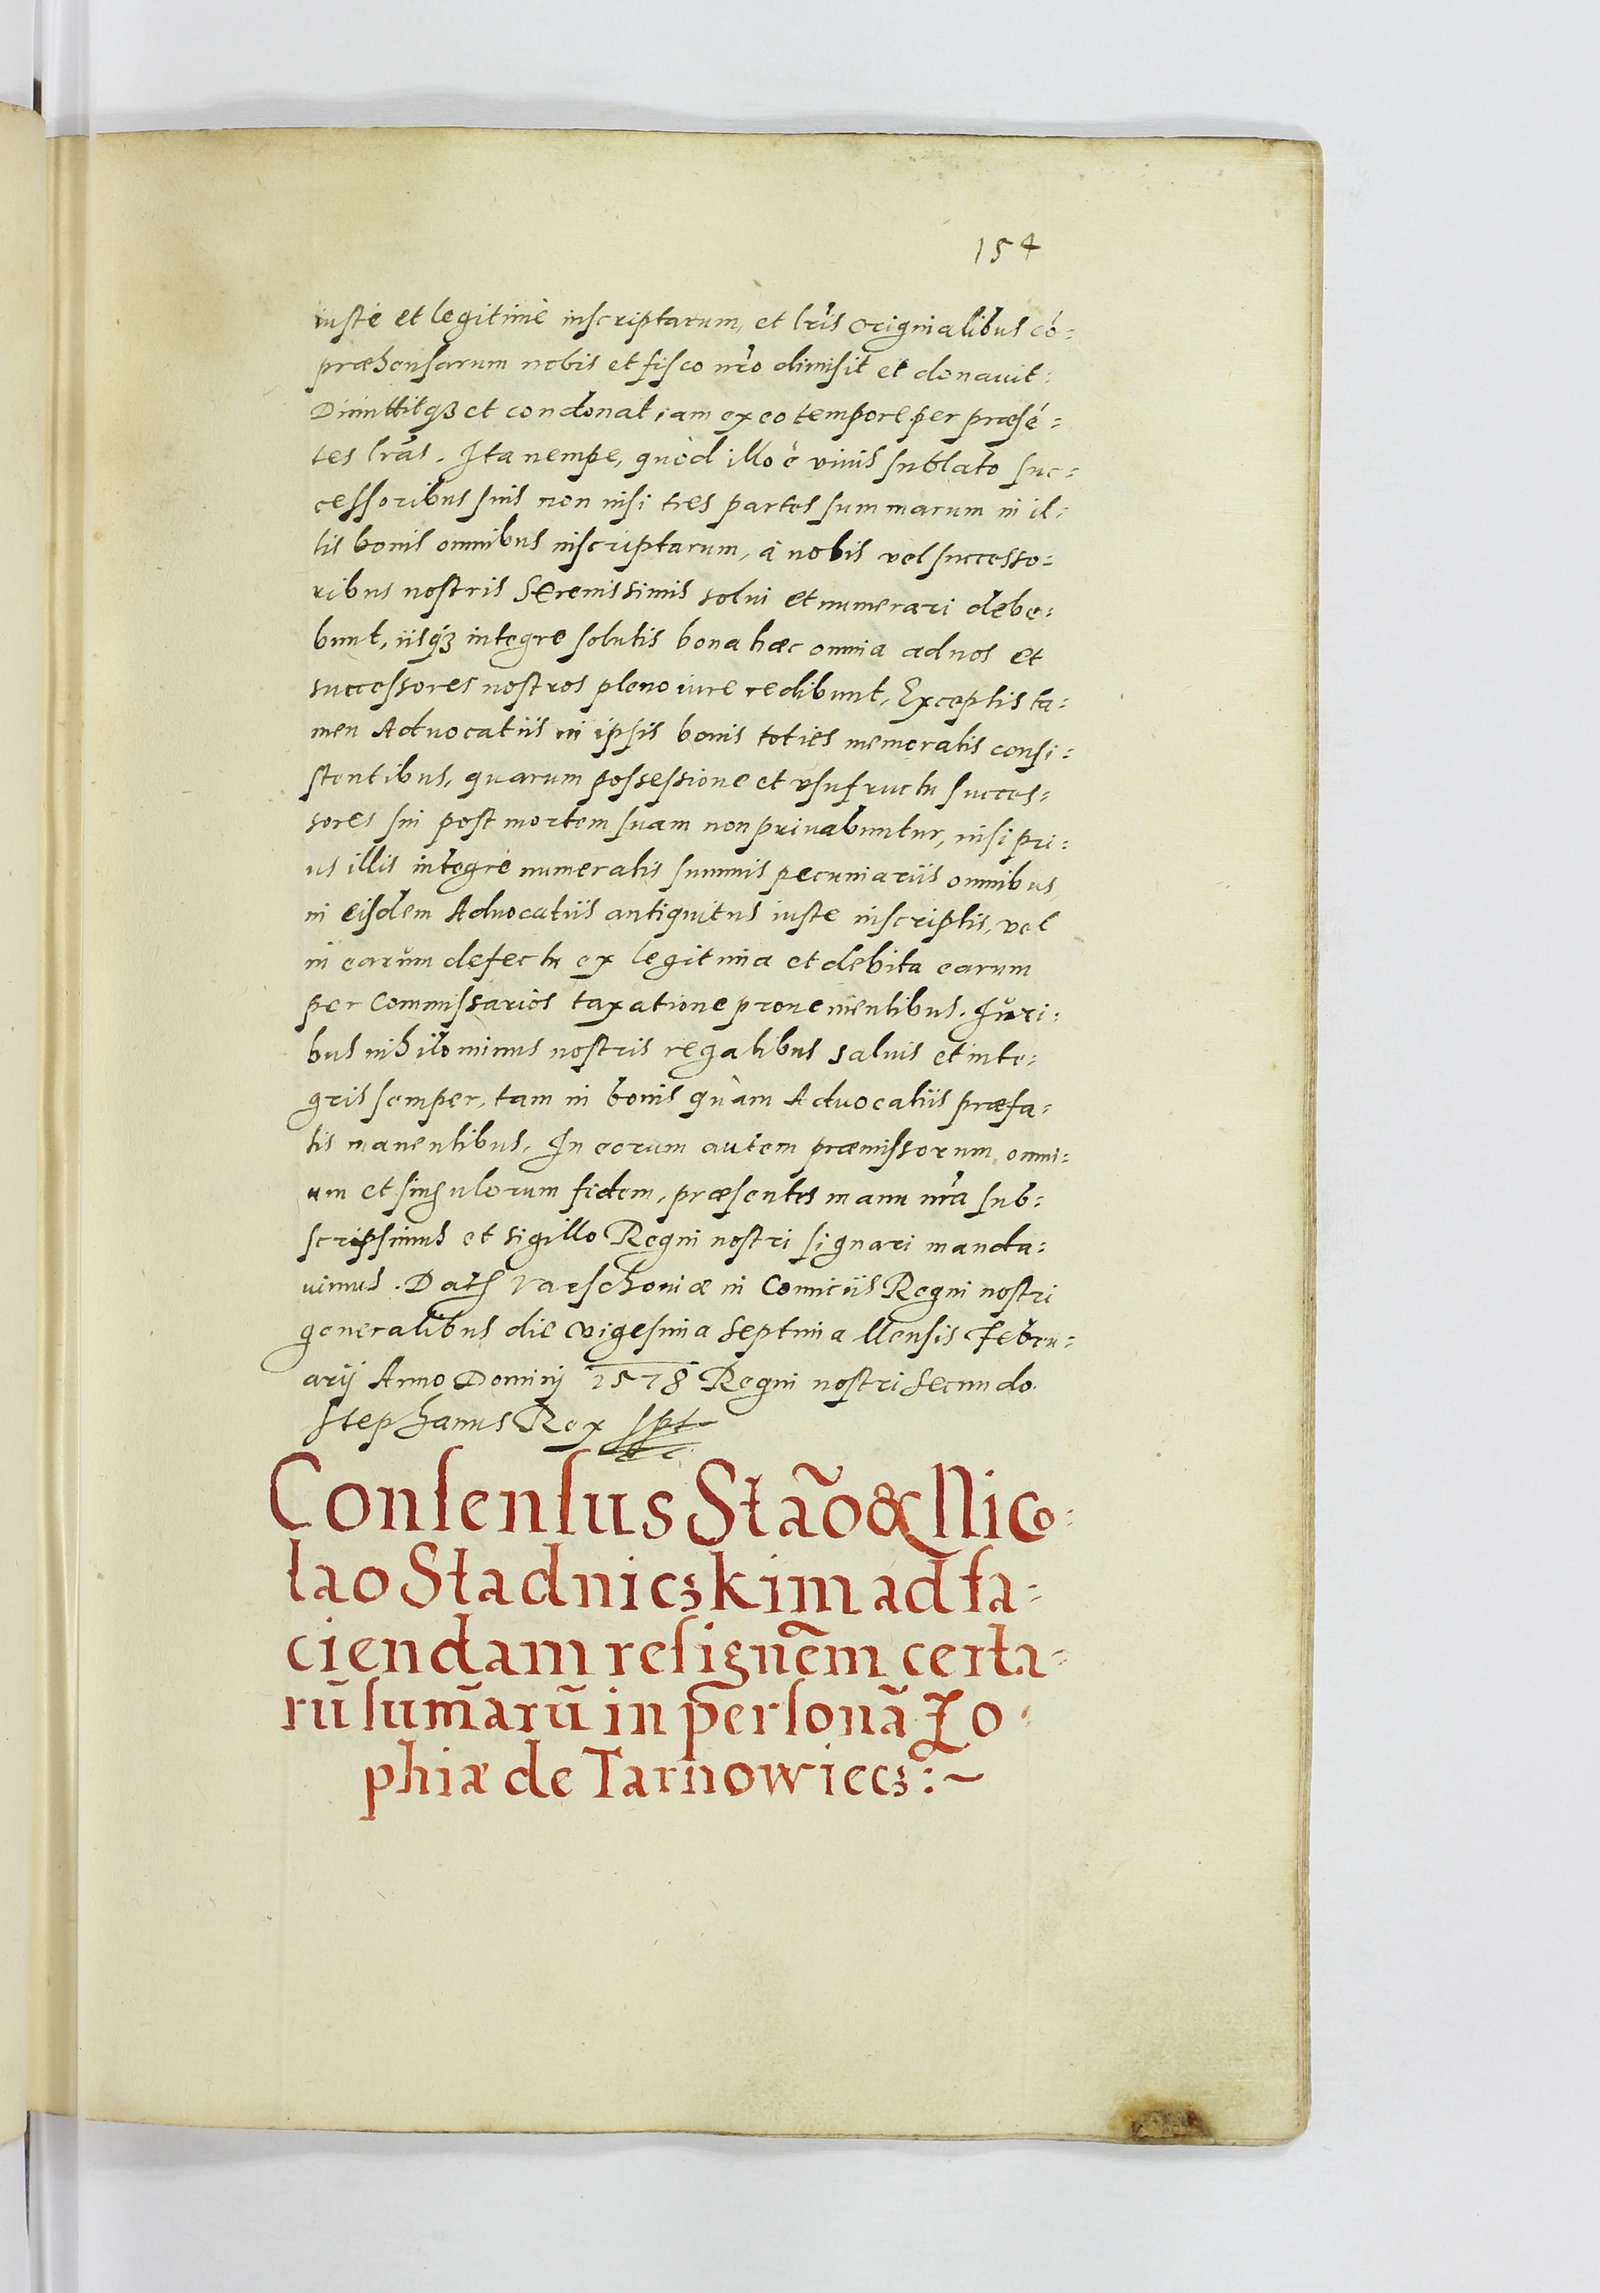 154
iuste et legitime inscriptarum, et lr̃is originalibus cõ-
præhensarum nobis et fisco nr̃o dimisit et donauit.
Dimittitqꝫ et condonat iam ex eo tempore per præsẽ-
tes lr̃as. Ita nempe, quòd illo è viuis sublato suc-
cessoribus suis non nisi tres partes summarum in il-
lis bonis omnibus inscriptarum, à nobis vel successo-
ribus nostris Serenissimis solui et numerari debe-
bunt, iisqꝫ integre solutis bona hæc omnia ad nos et
successores nostros pleno iure redibunt, Exceptis ta-
men Aduocatiis in ipsis bonis toties memoratis consi-
stentibus, quarum possessione et vsufructu succes-
sores sui post mortem suam non priuabuntur, nisi pri-
us illis integrè numeratis summis pecuniariis omnibus,
in eisdem Aduocatiis antiquitus iuste inscriptis, vel
in earum defectu ex legitima et debita earum
per Commissarios taxatione prouenientibus. Iuri-
bus nihilominus nostris regalibus saluis et inte-
gris semper, tam in bonis quàm Aduocatiis præfa-
tis manentibus. In eorum autem præmissorum omni-
um et singulorum fidem, præsentes manu nr̃a sub-
scripsimus et sigillo Regni nostri signari manda-
uimus. Datꝭ Varschouiæ in Comitiis Regni nostri
generalibus die vigesima septima Mensis Febru-
arij Anno Dominij 1578 Regni nostri secundo.
Stephanus Rex sspt
Consensus Stão & Nico-
lao Stadniczkim ad fa-
ciendam resignem̃ certa-
rũ sum̃arũ in personã Zo-
phiæ de Tarnowiecz :~